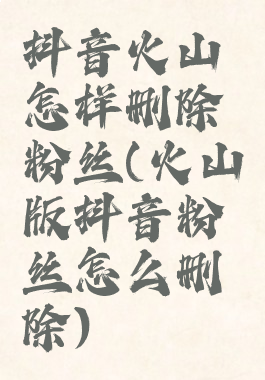 抖音火山
怎样删除
粉丝(火山
版抖音粉
丝怎么删
除)